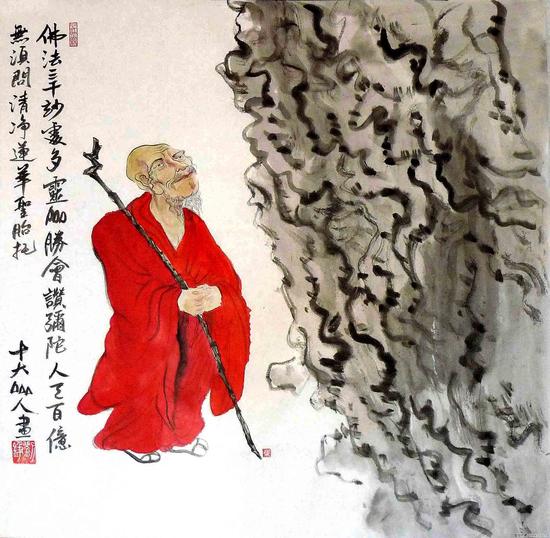 佛法三千妙處多靈山勝會讚彌陀人天百億
無須問清净蓮華聖胎托
十大山人畫